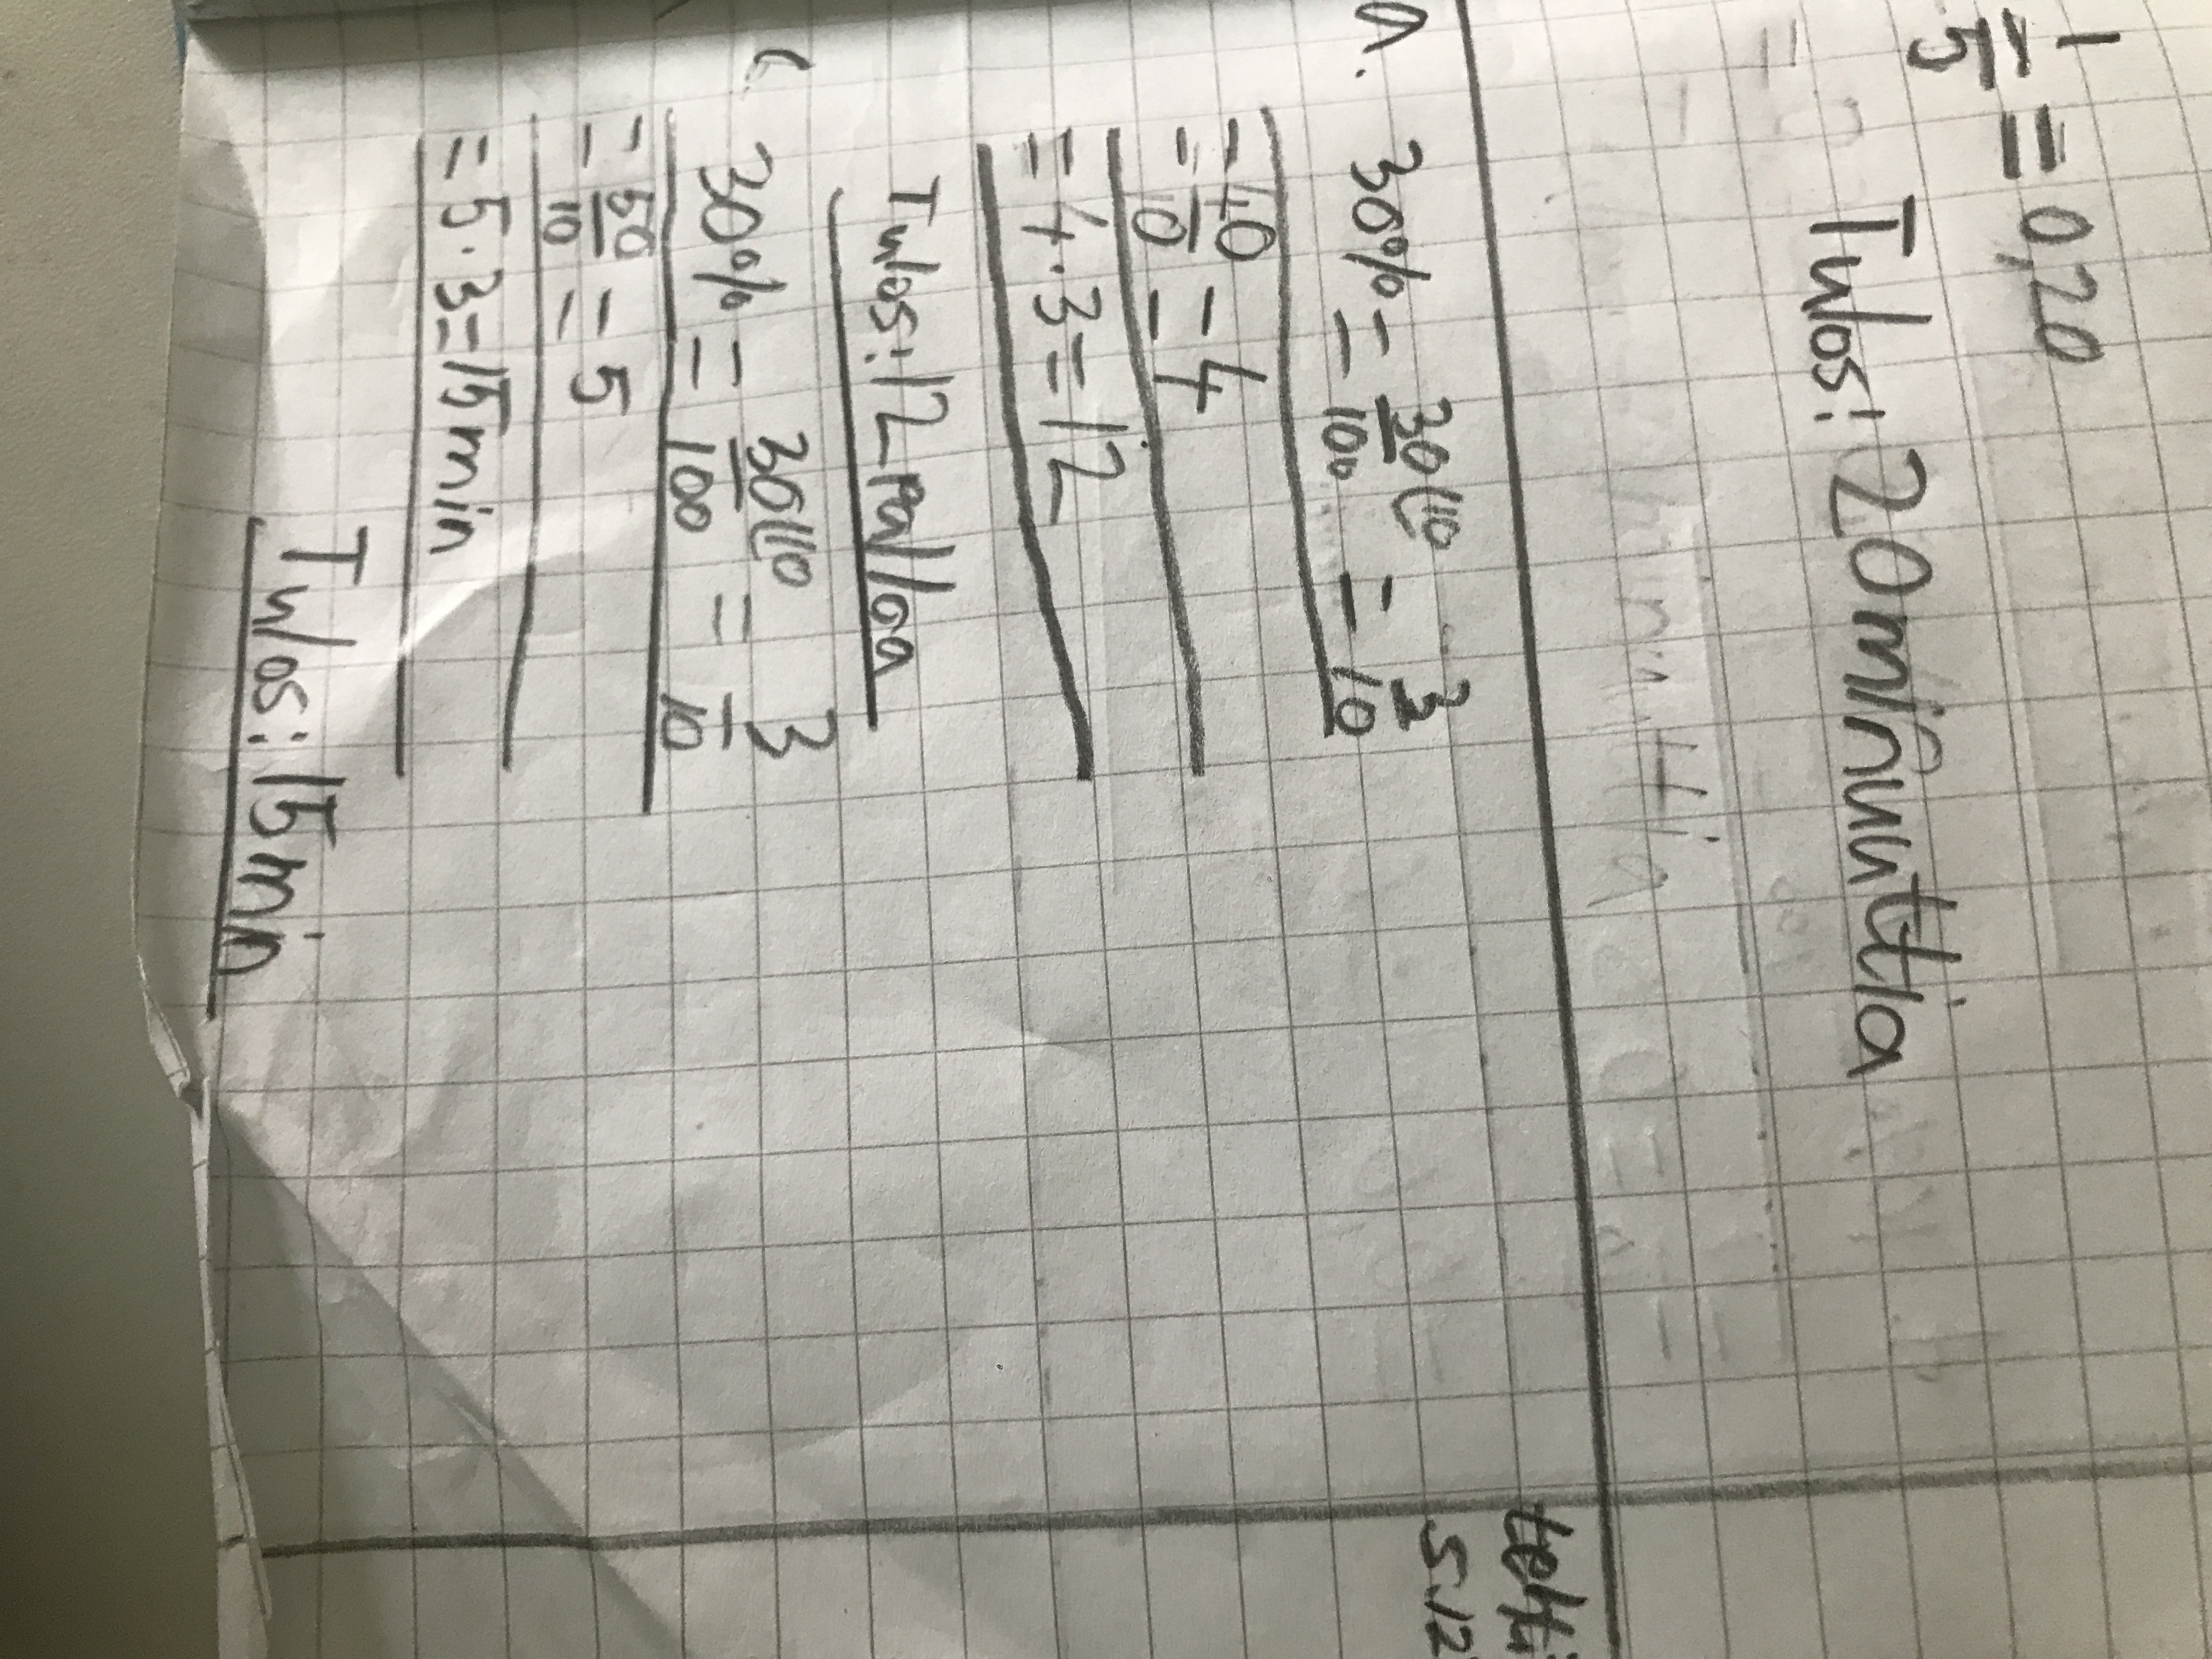 1/5 = 0,20
Tulos: 20 minuuttia
a. 30% = 30(10/100 = 3/10
= 40/10 = 4
= 4·3=12
Tulos: 12 palloa
30% = 30(10/100 = 3/10
= 50/10 = 5
= 5·3=15min
Tulos: 15min
s.12